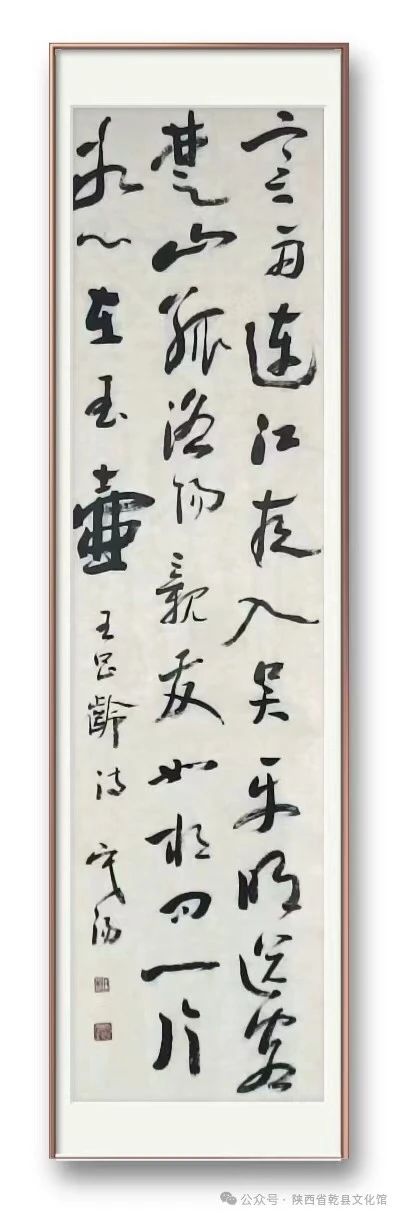 寒雨连江夜入吴平明送客
楚山孤洛阳亲友如相问一片
冰心在玉壶
王昌龄诗
公众号·陕西省乾县文化馆